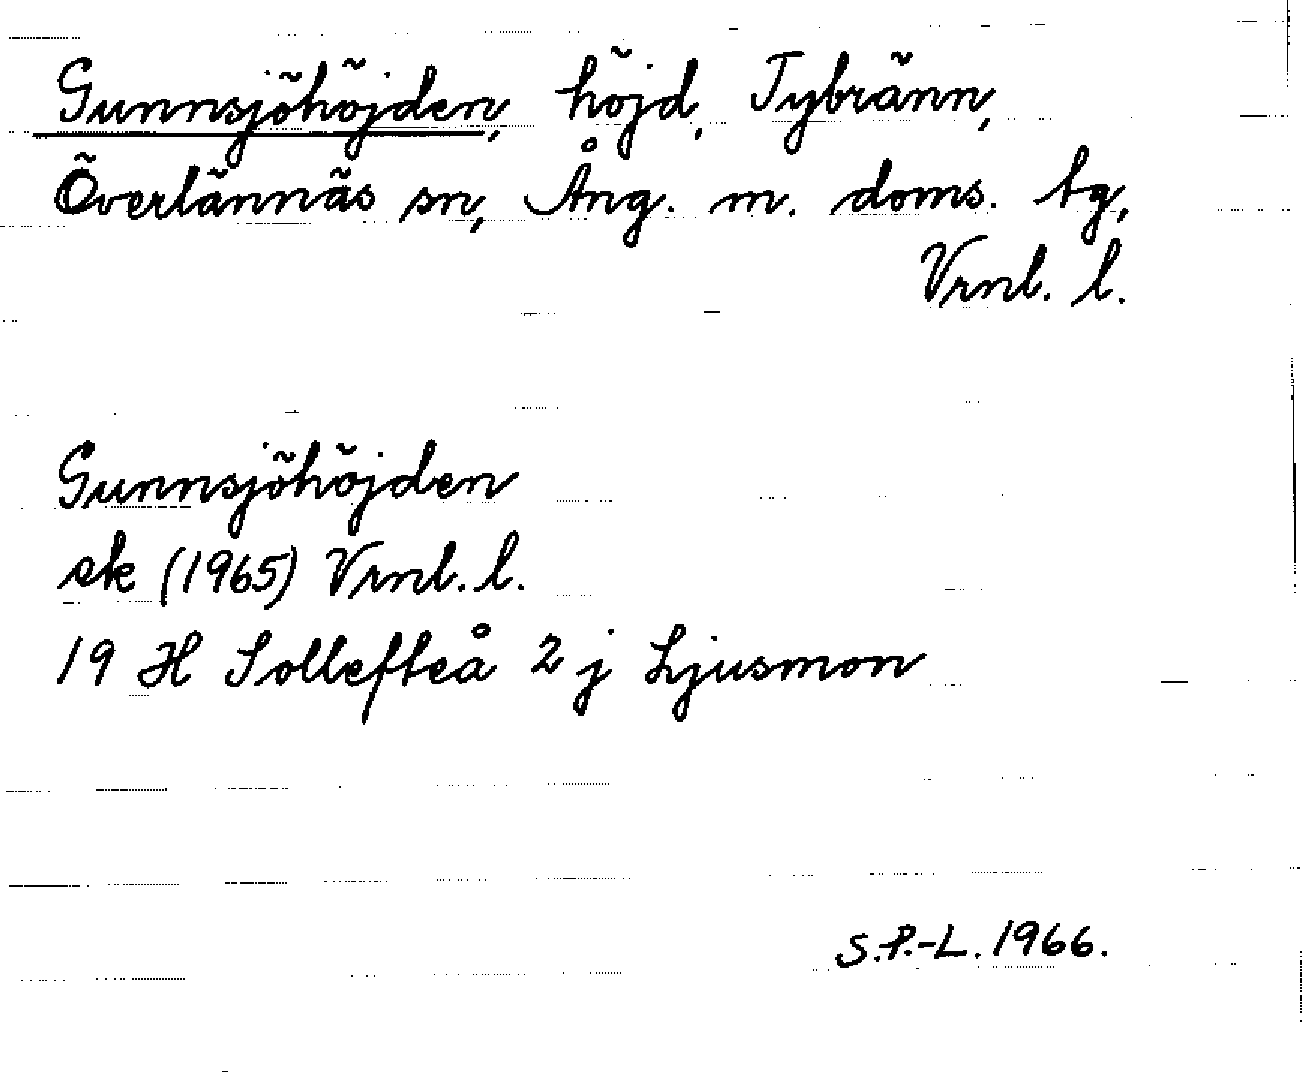 Gunnsjöhöjden, höjd, Tybränn,
Överlännäs sn, Ång. m. doms. tg,
Vrnl. l.
Gunnsjöhöjden
ek (1965) Vrnl. l.
19 H Sollefteå 2 j Ljusmon
S.P.-L. 1966.